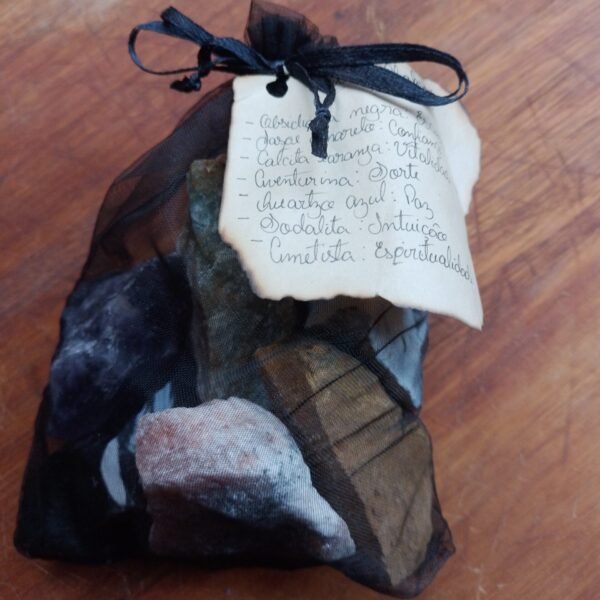 - Obsidiana negra:
- Jaspe Amarelo: Confian
- Calcita Laranja: Vitalidade
- Aventurina: Sorte
- Quartzo azul: Paz
- Sodalita: Intuição
- Ametista: Espiritualidad